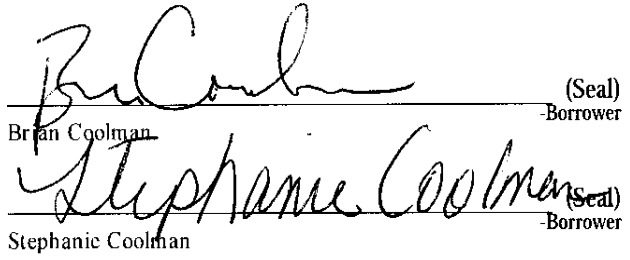 Brian Coolman (Seal)
-Borrower
Brian Coolman
Stephanie Coolman (Seal)
-Borrower
Stephanie Coolman